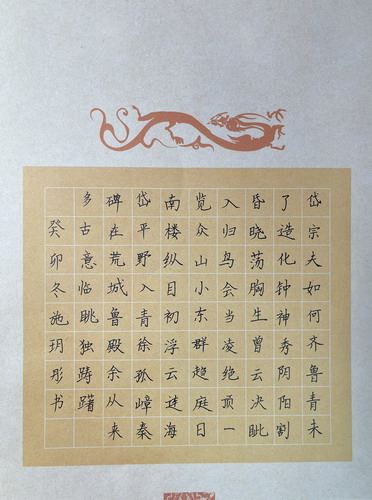 岱宗夫如何齐鲁青未
了造化钟神秀阴阳割
昏晓荡胸生曾云决眦
入归鸟会当凌绝顶一
览众山小东群趋庭日
南楼纵目初浮云连海
岱平野入青徐孤嶂秦
碑在荒城鲁殿余从来
多古意临眺独踌躇
癸卯冬施玥彤书